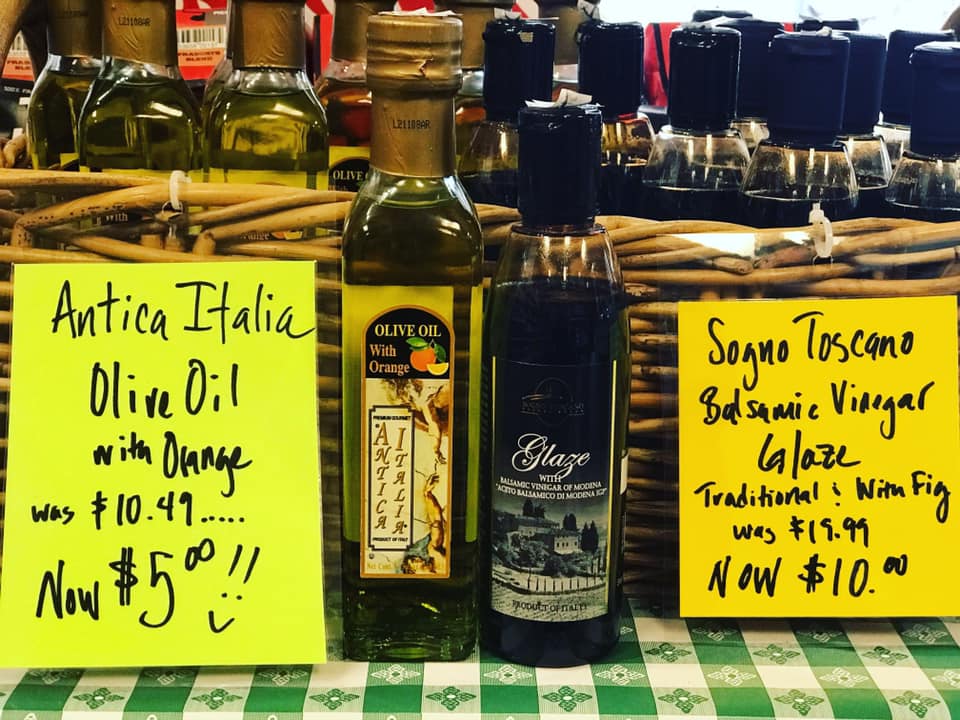 Antica Italia
Olive Oil
with Orange
was $10.49.....
Now $5.00!!
L21108AR
OLIVE OIL
With
Orange
PREMIUM GOURMET
ANTICA
ITALIA
PRODUCT OF ITALY
Glaze
WITH
BALSAMIC VINEGAR OF MODENA
"ACETO BALSAMICO DI MODENA IGP"
PRODUCT OF ITALY
Sogno Toscano
Balsamic Vinegar
Glaze
Traditional & With Fig
was $19.99
Now $10.00
L21108AR
L21108AR
OLIVE OIL
With